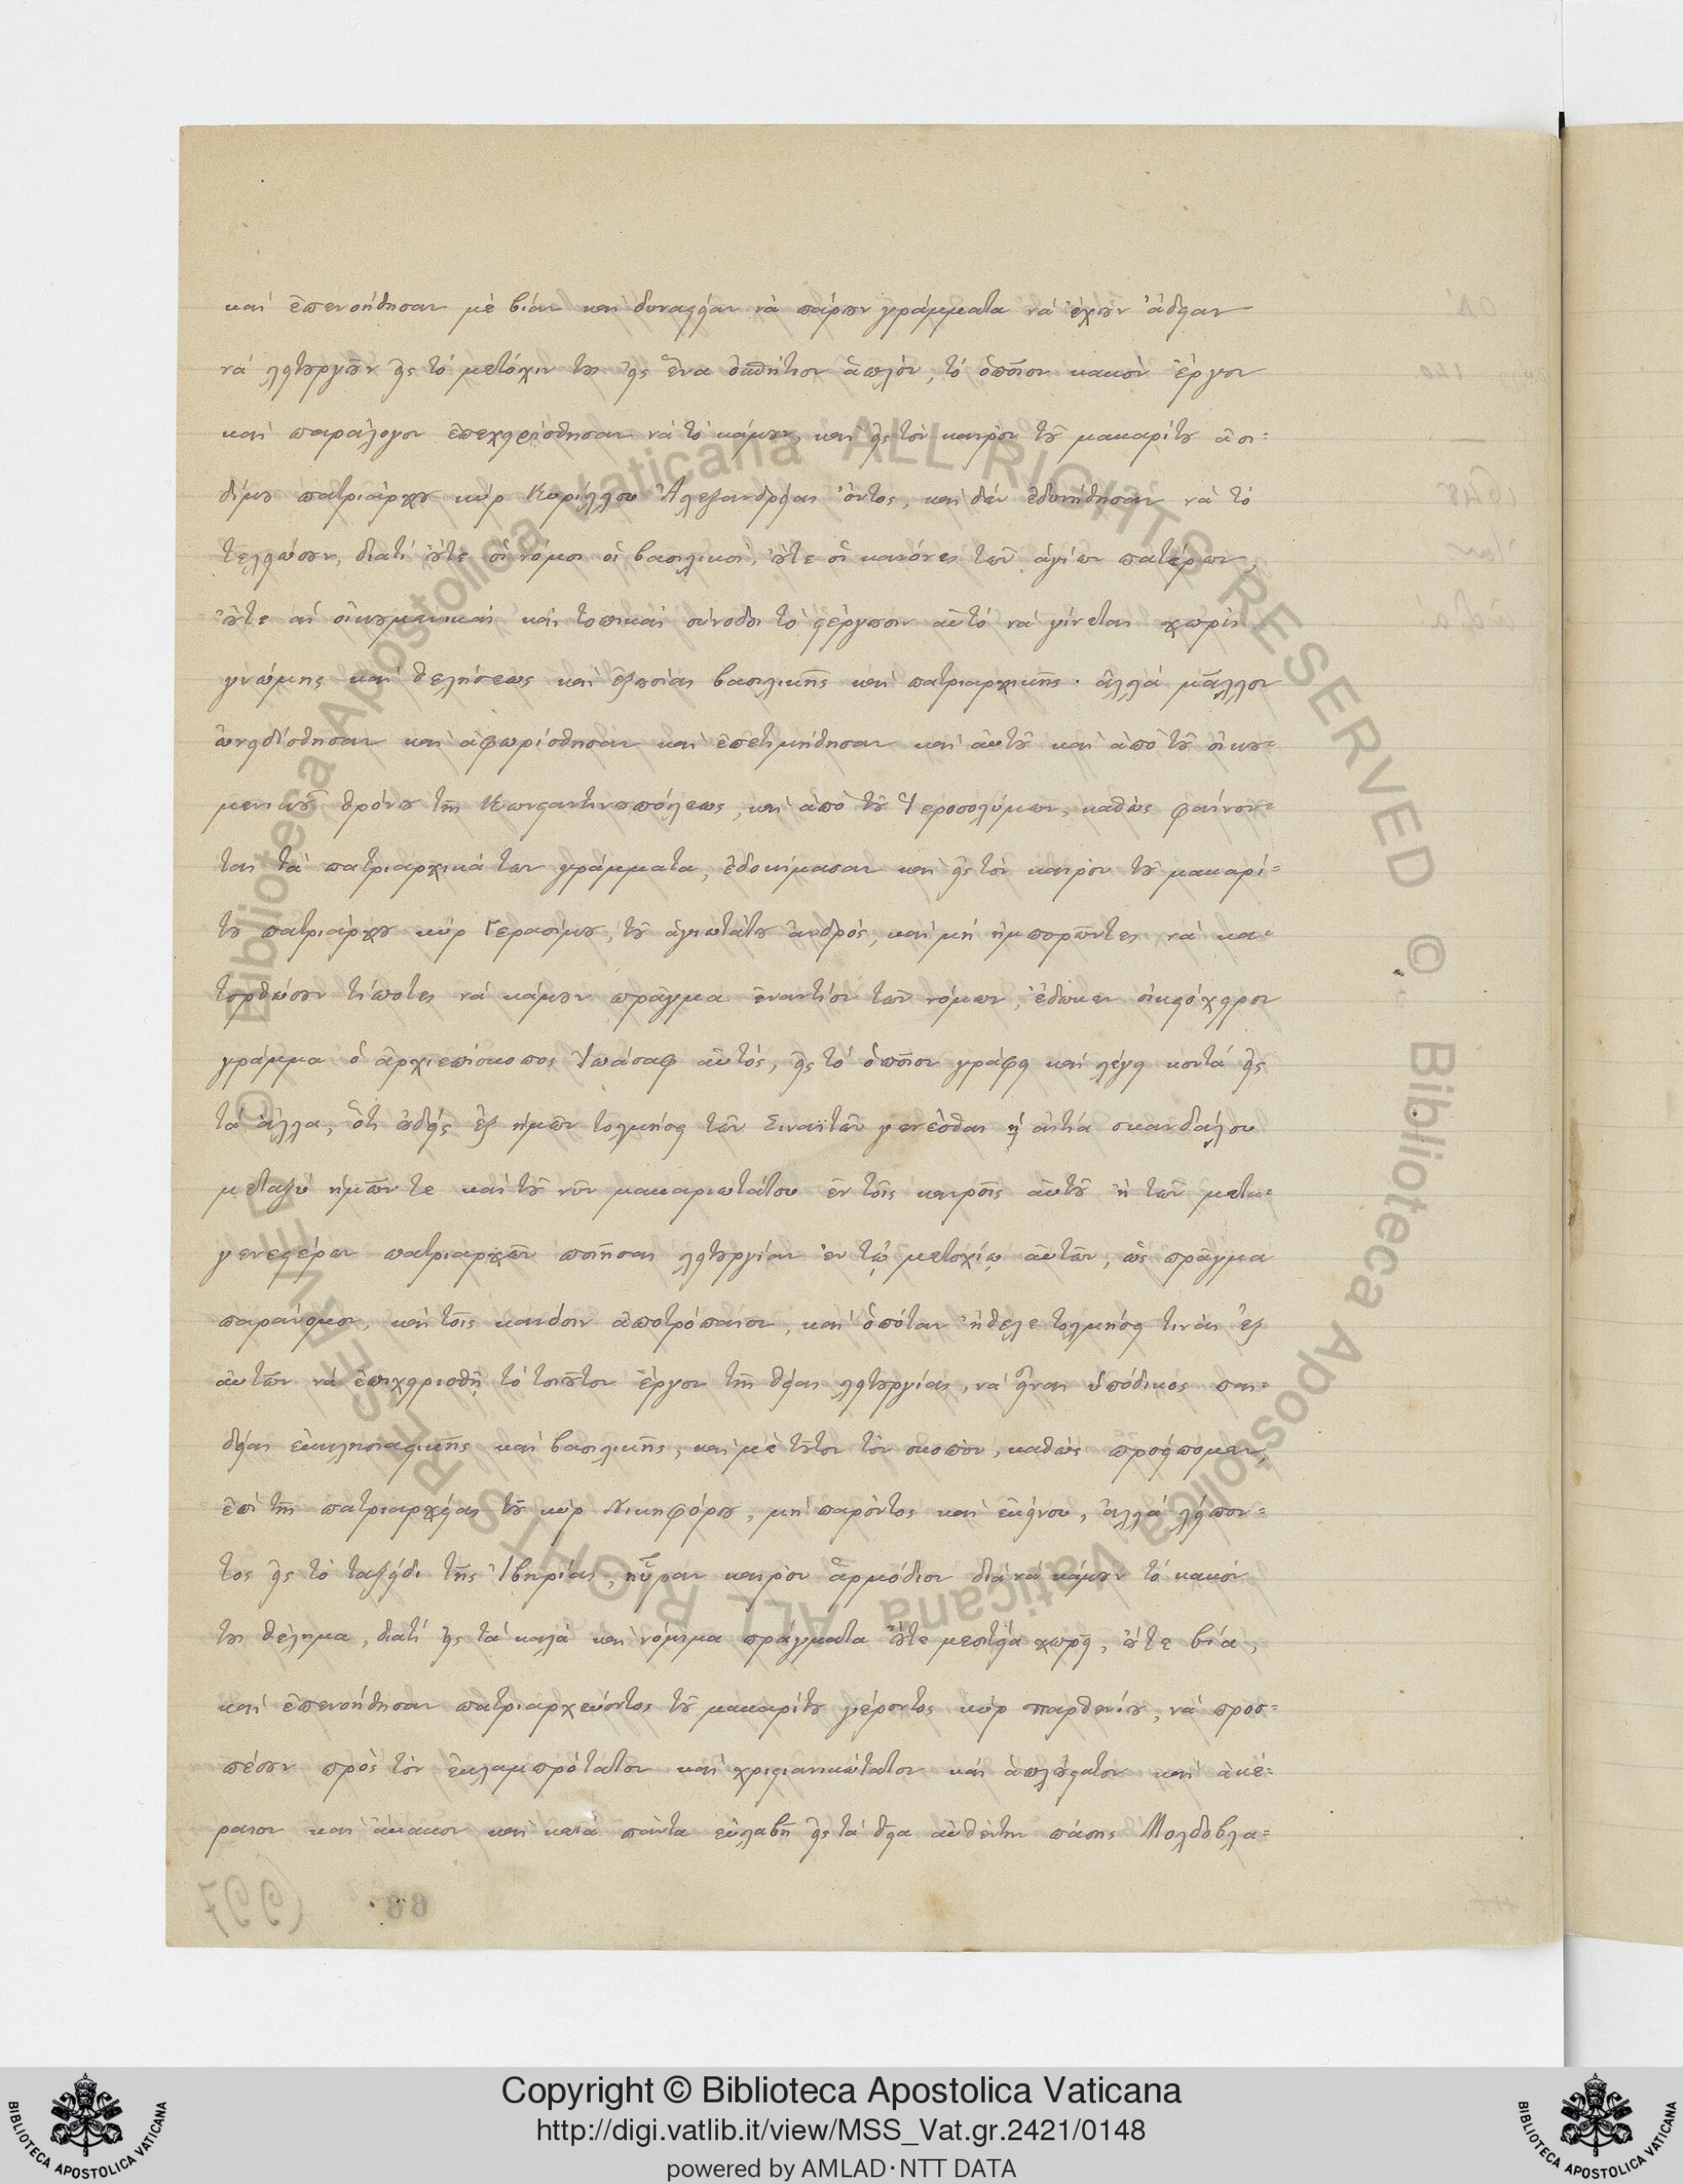 καὶ ἐπενοήθησαν μὲ βίαν καὶ δυναστείαν νὰ πάρουν γράμματα νὰ ἔχουν ἄδειαν
νὰ λειτουργοῦν εἰς τὸ μετόχιν των εἰς ἕνα ὁσπήτιον ἁπλόν, τὸ ὁποῖον κακὸν ἔργον
καὶ παράλογον ἐπεχειρίσθησαν νὰ τὸ κάμουν, καὶ εἰς τὸν καιρὸν τοῦ μακαρίτου ἀοι=
δίμου πατριάρχου κὺρ Κυρίλλου Ἀλεξανδρείας ὄντος, καὶ δὲν ἐδυνήθησαν νὰ τὸ
τελειώσουν, διατί οὔτε οἱ νόμοι οἱ βασιλικοί, οὔτε οἱ κανόνες τῶν ἁγίων πατέρων,
οὔτε αἱ οἰκουμενικαὶ καὶ τοπικαὶ σύνοδοι τὸ στέργουσιν αὐτὸ νὰ γίνεται χωρὶς
γνώμης καὶ θελήσεως καὶ ἐξουσίας βασιλικῆς καὶ πατριαρχικῆς· ἀλλὰ μᾶλλον
ὠνειδίσθησαν καὶ ἀφωρίσθησαν καὶ ἐπετιμήθησαν καὶ αὐτοῦ καὶ ἀπὸ τοῦ οἰκου=
μενικοῦ θρόνου τῆς Κωνσταντινουπόλεως, καὶ ἀπὸ τοῦ Ἱεροσολύμων, καθὼς φαίνον=
ται τὰ πατριαρχικά των γράμματα, ἐδοκίμασαν καὶ εἰς τὸν καιρὸν τοῦ μακαρί=
του πατριάρχου κὺρ Γερασίμου, τοῦ ἁγιωτάτου ἀνδρός, καὶ μὴ ἠμποροῦντες νὰ κα=
τορθώσουν τίποτες νὰ κάμουν πρᾶγμα ἐναντίον τῶν νόμων, ἔδωκεν οἰκειόχειρον
γράμμα ὁ ἀρχιεπίσκοπος Ἰωάσαφ αὐτός, εἰς τὸ ὁποῖον γράφει καὶ λέγει κοντὰ εἰς
τὰ ἄλλα, ὅτι οὐδεὶς ἐξ ἡμῶν τολμήσει τῶν Σιναϊτῶν γενέσθαι ἡ αἰτία σκανδάλου
μεταξὺ ἡμῶν τε καὶ τοῦ νῦν μακαριωτάτου ἐν τοῖς καιροῖς αὐτοῦ ἢ τῶν μετα=
γενεστέρων πατριαρχῶν ποιῆσαι λειτουργίαν ἐν τῷ μετοχίῳ αὐτῶν, ὡς πρᾶγμα
παράνομον, καὶ τοῖς κανόσιν ἀποτρόπαιον, καὶ ὁπόταν ἤθελε τολμήσει τινὰς ἐξ
αὐτῶν νὰ ἐπιχειρισθῇ τὸ τοιοῦτον ἔργον τῆς θείας λειτουργίας, νὰ εἶναι ὑπόδικος παι=
δείας ἐκκλησιαστικῆς καὶ βασιλικῆς, καὶ μὲ τοῦτον τὸν σκοπὸν, καθὼς προείπομεν,
ἐπὶ τῆς πατριαρχείας τοῦ κὺρ Νικηφόρου, μὴ παρόντος καὶ ἐκείνου, ἀλλὰ λείπον=
τος εἰς τὸ ταξείδι τῆς Ἰβηρίας, ηὗραν καιρὸν ἁρμόδιον διὰ νὰ κάμουν τὸ κακόν
των θέλημα, διατί εἰς τὰ καλὰ καὶ νόμιμα πράγματα οὔτε μεσιτεία χωρεῖ, οὔτε βία,
καὶ ἐπενοήθησαν πατριαρχεύοντος τοῦ μακαρίτου γέροντος κὺρ Παρθενίου, νὰ προσ=
πέσουν πρὸς τὸν ἐκλαμπρότατον καὶ χριστιανικώτατον καὶ ἁπλούστατον καὶ ἀκέ=
ραιον καὶ ἄκακον καὶ κατὰ πάντα εὐλαβῆ εἰς τὰ θεῖα αὐθέντην πάσης Μολδοβλα=
Copyright © Biblioteca Apostolica Vaticana
http://digi.vatlib.it/view/MSS_Vat.gr.2421/0148
powered by AMLAD·NTT DATA